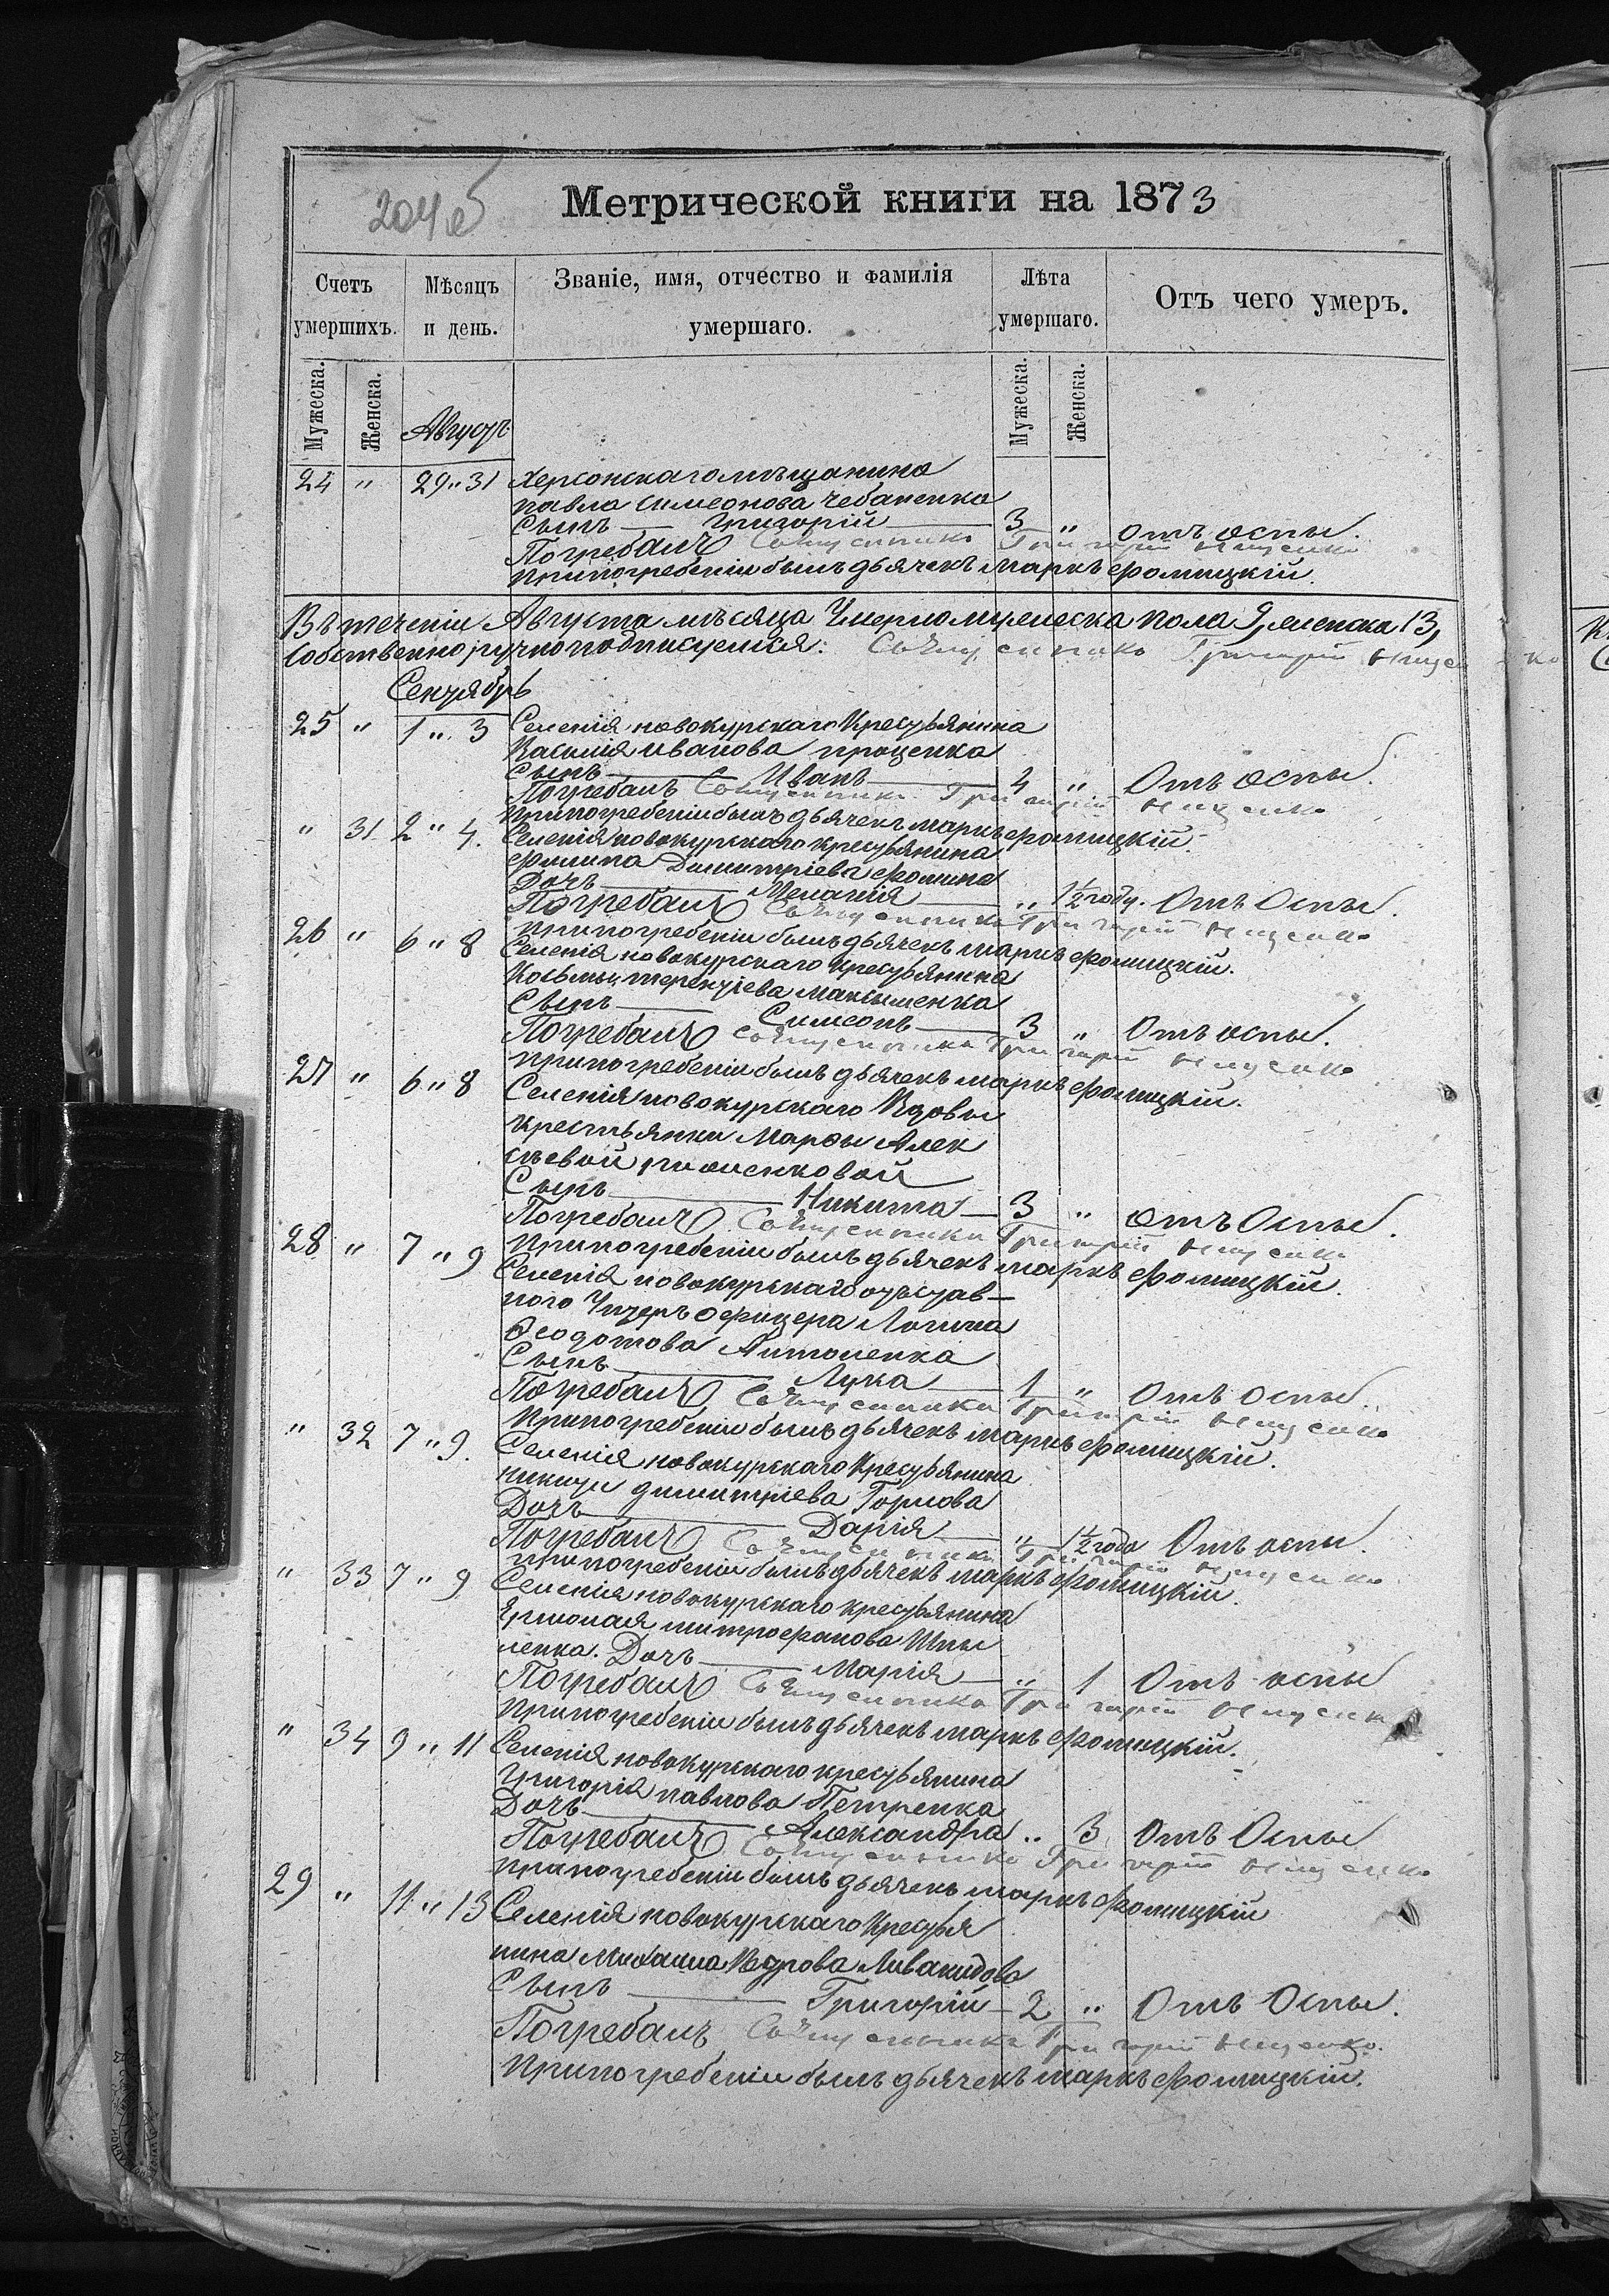 204 об
Метрической книги на 1873
Счетъ умершихъ.
Мѣсяцъ и день.
Званіе, имя, отчество и фамилія умершаго.
Лѣта умершаго.
Отъ чего умеръ.
Мужеска.
Женска.
Мужеска.
Женска.
Августъ
24 " 29" 31 Херсонскаго мѣщанина
павла Симеонова Чебаненка
Сынъ — Григорій — 3 " отъ оспы.
Погребалъ Священникъ Григорій
При погребеніи былъ дьячекъ маркъ Фомицкій.
Въ теченіи Августа мѣсяца Умерло мужеска пола 9, женска 13,
Собственноручно подписуемся: Священникъ Григорій
Сентябрь
25 " 1 " 3 Селенія новокурскаго Крестьянина
Василія иванова проценка
Сынъ — Иванъ — 4 " Отъ оспы.
Погребалъ Священникъ Григорій
При погребеніи былъ дьячекъ маркъ Фомицкій.
" 31 2 " 4. Селенія новокурскаго крестьянина
филипа Димитріева Фомина
Дочь — Меланія — " 1½ году. Отъ Оспы.
Погребалъ Священникъ Григорій
При погребеніи былъ дьячекъ маркъ Фомицкій.
26 " 6 " 8 Селенія новокурскаго крестьянина
Косьмы терентіева Максименка
Сынъ — Симеонъ — 3 " Отъ оспы.
Погребалъ Священникъ Григорій
При погребеніи былъ дьячекъ маркъ Фомицкій.
27 " 6 " 8 Селенія новокурскаго Вдовы
крестьянки Марфы Алек
сѣевой
Сынъ — Никита — 3 " отъ Оспы.
Погребалъ Священникъ Григорій
При погребеніи былъ дьячекъ маркъ Фомицкій.
28 " 7 " 9 Селенія новокурскаго отстав–
ного Унтеръ офицера Логина
Ѳеодотова Антоненка
Сынъ — Лука — 1 " отъ оспы.
Погребалъ Священникъ Григорій
При погребеніи былъ дьячекъ маркъ Фомицкій.
" 32 7 " 9. Селенія новокурскаго Крестьянина
никиты димитріева Горлова
Дочь — Дарія — " 1½ года Отъ оспы.
Погребалъ Священникъ Григорій
При погребеніи былъ дьячекъ маркъ Фомицкій.
" 33 7 " 9 Селенія новокурскаго крестьянина
Ермолая митрофанова Шпы
ленка. Дочь — Марія — " 1 Отъ оспы
Погребалъ Священникъ Григорій
При погребеніи былъ дьячекъ маркъ Фомицкій.
" 34 9 " 11 Селенія новокурскаго крестьянина
Григорія павлова Петренка
Дочь — Александра " 3 Отъ Оспы
Погребалъ Священникъ Григорій
При погребеніи былъ дьячекъ маркъ Фомицкій
29 " 11 " 13 Селенія новокурскаго Крестья
нина Михаила
Сынъ — Григорій — 2 " Отъ Оспы.
Погребалъ Священникъ Григорій
При погребеніи былъ дьячекъ маркъ Фомицкій.